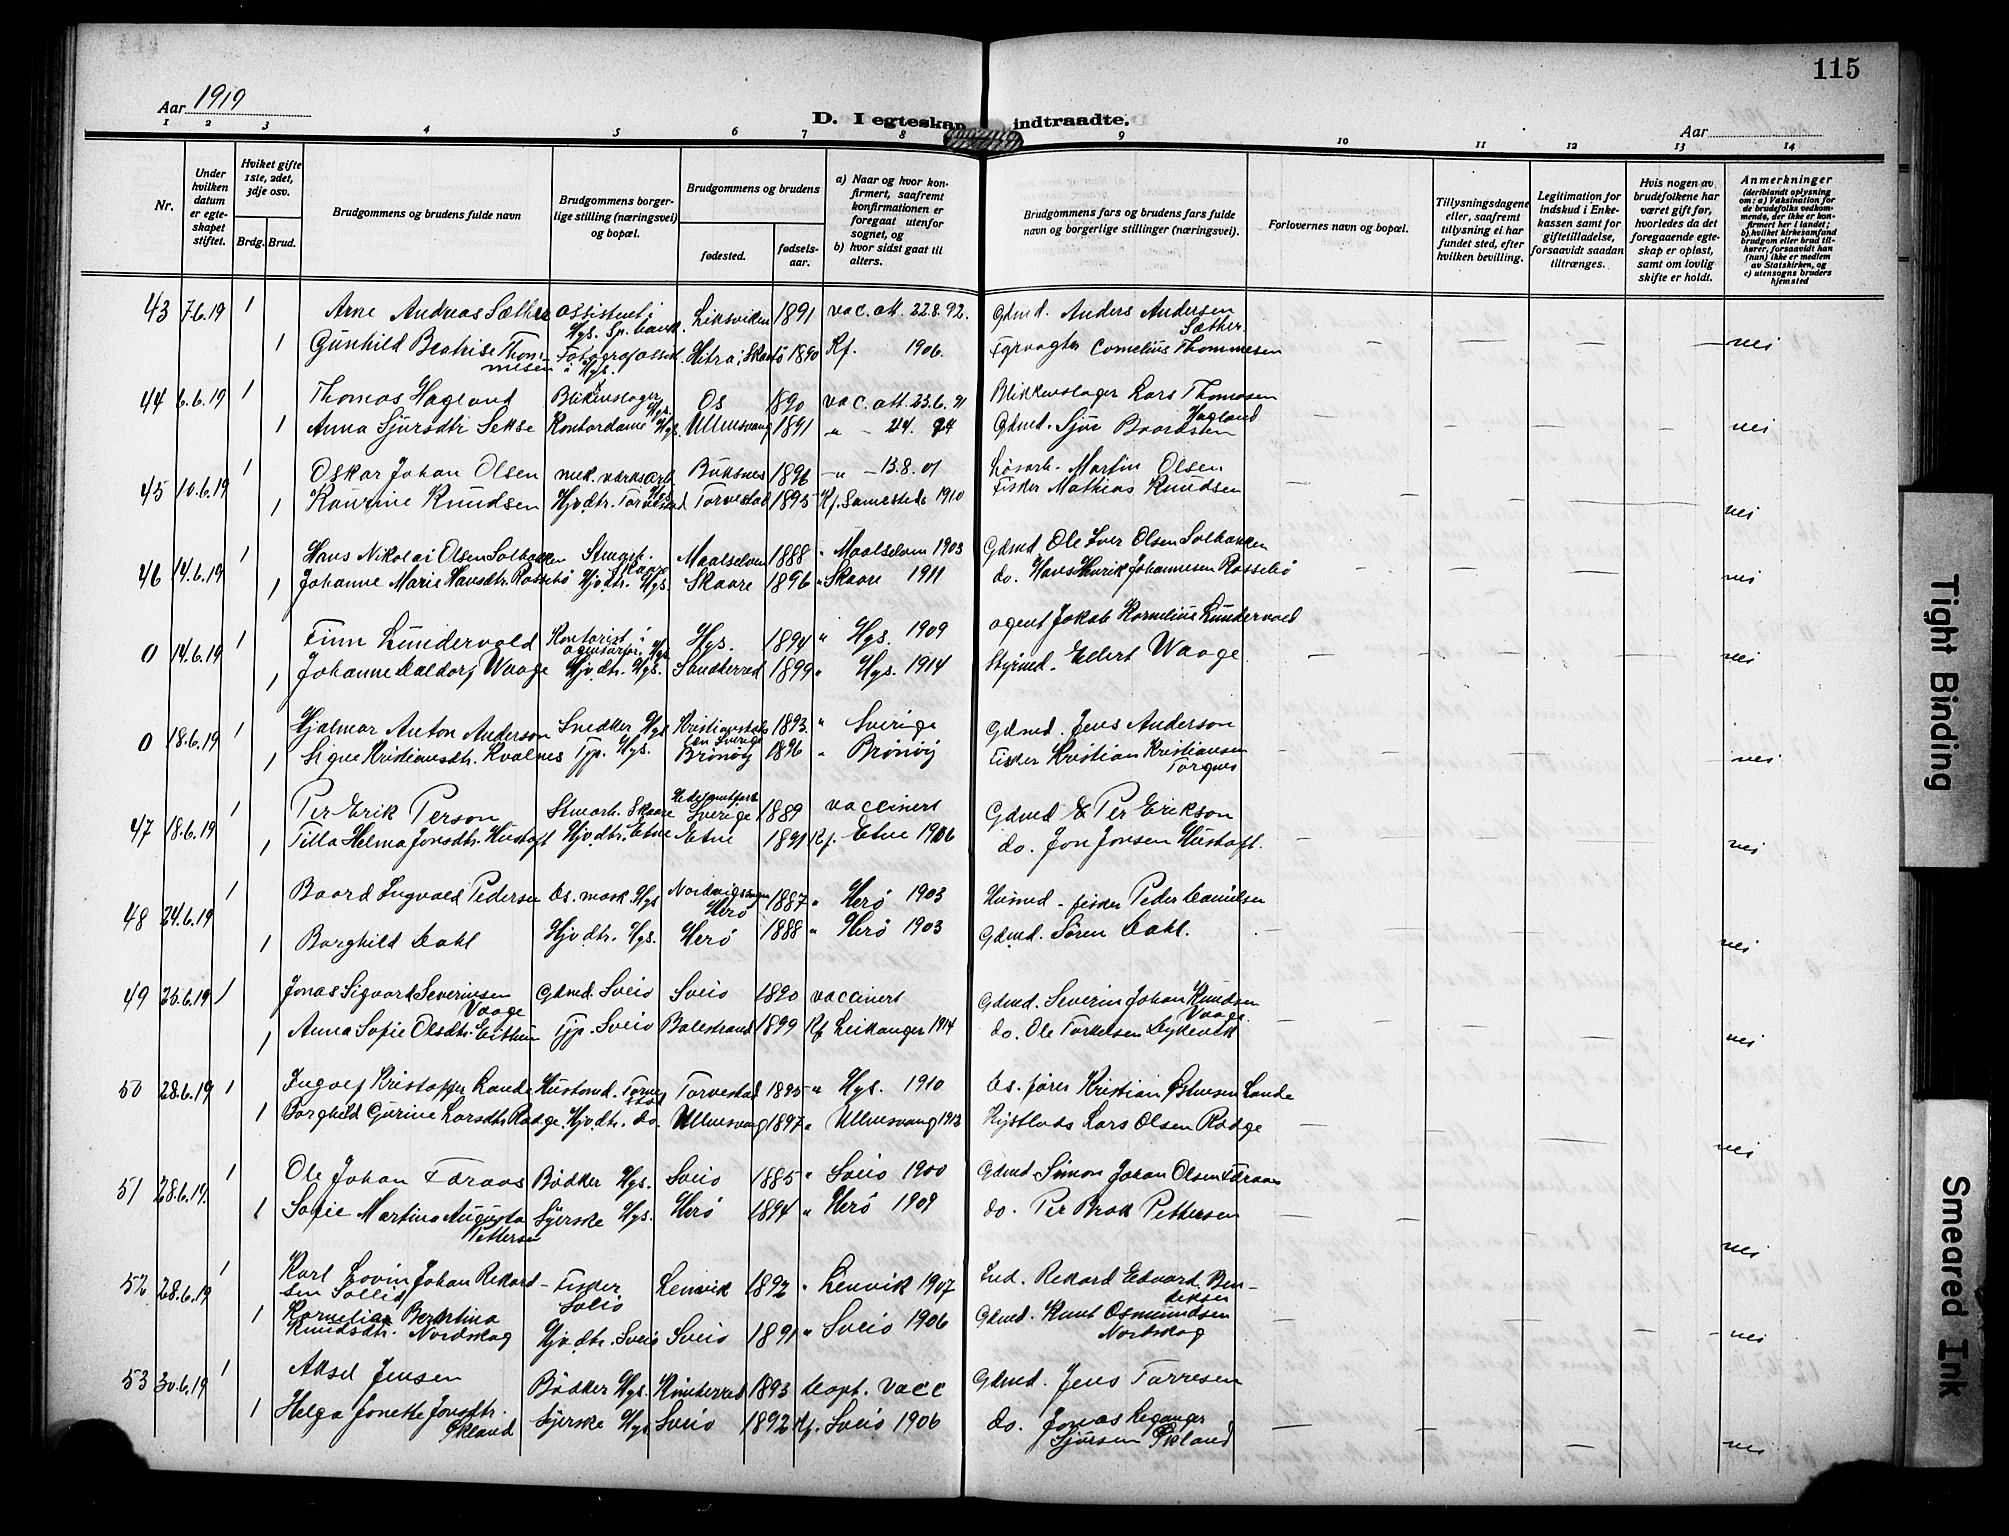 115
Aar 1919
D. I egteskap indtraadte.
Aar
1 2 3 4 5 6 7 8 9 10 11 12 13 14
Nr.
Under hvilken datum er egteskapet stiftet.
Hvilket gifte 1ste, 2det, 3dje osv.
Brdg. Brud.
Brudgommens og brudens fulde navn
Brudgommens borgerlige stilling (næringsvei) og bopæl.
Brudgommens og brudens
fødested.
fødselsaar.
a) Naar og hvor konfirmert, saafremt konfirmationen er foregaat utenfor sognet, og
b) hvor sidst gaat til alters.
Brudgommens fars og brudens fars fulde navn og borgerlige stillinger (næringsvei).
Forlovernes navn og bopæl.
Tillysningsdagene eller, saafremt tillysning ei har fundet sted, efter hvilken bevilling.
Legitimation for indskud i Enkekassen samt for giftetilladelse, forsaavidt saadan tiltrænges.
Hvis nogen av brudefolkene har været gift før, hvorledes da det foregaaende egteskap er opløst, samt om lovlig skifte er holdt.
Anmerkninger
(deriblandt oplysning om: a) Vaksination for de brudefolks vedkommende, der ikke er konfirmert her i landet; b) hvilket kirkesamfund brudgom eller brud tilhører, forsaavidt han (hun) ikke er medlem av Statskirken, og c) utensogns bruders hjemsted
43 7.6.19 1 Arne Andreas Sæther assistent i Hgs. Sp. bank. Leksviken 1891 vac. att. 22.8.92. Gdmd. Anders Andersen Sæther.
1 Gunhild Beatrise Thommesen Fotografassist. i Hgs. Hitra, 1890 Kf. 1906. Fyrvogter Cornelius Thommesen nei
44 6.6.19 1 Thomas Hagland Blikkenslager Hgs. Os 1890 vac. att. 23.6.91 Blikkenslager Lars Thomasen Hagland
1 Anna Sjursdtr Sekse Kontordame Hgs. Ullensvang 1891 " - 24. 94 Gdmd. Sjur Baardsen nei
45 10.6.19 1 Oskar Johan Olsen mek. verksarb. Hgs. Buksnes 1896 -"- 13.8.01 Løsarb. Martin Olsen
1 Kaurine Knudsen Hjv.dtr. Torvestad Torvestad 1895 Kf. Sammesteds 1910 Fisker Mathias Knudsen nei
46 14.6.19 1 Hans Nikolai Olsen Solbakken Stuearb. Skaare Maalselven 1888 " Maalselven 1903 Gdmd Ole Iver Olsen Solbakken
1 Johanne Marie Hansdtr. Rossebø Hjv.dtr. Hgs. Skaare 1896 " Skaare 1911 do. Hans Henrik Johannesen Rossebø nei
0 14.6.19 1 Finn Lundervold Kontorist i agenturfor. Hgs Hgs. 1894 " Hgs. 1909 agent Jakob Kornelius Lundervold
1 Johanne Waage Hjv.dtr. Hgs. Sandherred 1899 " Hgs. 1914 Styrmd. Edert Waage. nei
0 18.6.19 1 Hjalmar Anton Anderson Snedker Hgs Kristianstads len Sverige 1893 " Sverige Gdmd. Jens Anderson
1 Signe Kristiansdtr. Kvalnes Tjp. Hgs. Brønøy 1896 " Brønøy Fisker Kristian Kristiansen Torgnes nei
47 18.6.19 1 Per Erik Person Stuearb. Skaare Sverige 1889 vaccinert Gdmd Per Erikson
1 Tilla Helma Jonsdtr. Hustoft Hjv.dtr. Etne Etne 1891 Kf. Etne 1906 do. Jon Jonsen Hustoft. nei
48 24.6.19 1 Baard Ingvald Pedersen Ds. mask. Hgs Herø 1887 " Herø 1903 Husmd - fisker Peder Danielsen
1 Borghild Dahl Hjv.dtr. Hgs. Herø 1888 " Herø 1903 Gdmd. Søren Dahl. nei
49 25.6.19 1 Jonas Sigvard Severinsen Vaage Gdmd. Sveio Sveio 1890 vaccinert Gdmd. Severin Johan Knudsen Vaage.
1 Anna Sofie Olsdtr. Eithun Tjp. Sveio Balestrand 1899 Kf Leikanger 1914 do. Ole Torkelsen Dykevik nei
50 28.6.19 1 Ingolf Kristoffer Lande Husmd. Torvestad Torvestad 1895 " Hgs. 1910 Ds. fører Kristian Østensen Lande
1 Borghild Gurine Larsdtr Rødge. Hjv.dtr. do. Ullensvang 1897 " Ullensvang 1913 Kystlods Lars Olsen Rødge nei
51 28.6.19. 1 Ole Johan Føraas Bødker Hgs. Sveio 1885 " Sveio 1900 Gdmd. Simon Johan Olsen Føraas
1 Sofie Martina Augusta Pettersen Syerske Hgs. Herø 1894 " Herø 1909 do. Per Brok Pettersen nei
52 28.6.19 1 Karl Lovin Johan Rekardsen Sollid Fisker Sveio Lenvik 1892 " Lenvik 1907 Ind. Rekard Edvard Bendiksen
1 Kornelia Bertina Knudsdtr. Nordskog Hjv.dtr. Sveio Sveio 1891 " Sveio 1906 Gdmd. Knut Osmundsen Nordskog nei
53 30.6.19 1 Aksel Jensen Bødker Hgs. Kinnherred 1893 vacc Gdmd. Jens Torresen
1 Helga Jonette Jonsdtr. Økland Syerske Hgs Sveio 1892 Kf. Sveio 1906 do. Jonas Leganger Sjursen Økland nei
Tight Binding
Smeared Ink